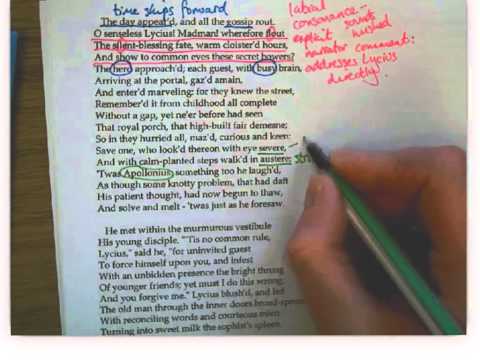 time skips forward
The day appear'd, and all the gossip rout.
O senseless Lycius! Madman! wherefore flout
The silent-blessing fate, warm cloister'd hours,
And show to common eyes these secret bowers?
The herd approach'd; each guest, with busy brain,
Arriving at the portal, gaz'd amain,
And enter'd marveling: for they knew the street,
Remember'd it from childhood all complete
Without a gap, yet ne'er before had seen
That royal porch, that high-built fair demesne;
So in they hurried all, maz'd, curious and keen:
Save one, who look'd thereon with eye severe,
And with calm-planted steps walk'd in austere;
'Twas Apollonius: something too he laugh'd,
As though some knotty problem, that had daft
His patient thought, had now begun to thaw,
And solve and melt - 'twas just as he foresaw.
He met within the murmurous vestibule
His young disciple. "'Tis no common rule,
Lycius," said he, "for uninvited guest
To force himself upon you, and infest
With an unbidden presence the bright throng
Of younger friends; yet must I do this wrong,
And you forgive me." Lycius blush'd, and led
The old man through the inner doors broad-spread;
With reconciling words and courteous mien
Turning into sweet milk the sophist's spleen.
labial
consonance -
explicit sounds
hushed
narrator comment:
addresses Lycius
directly.